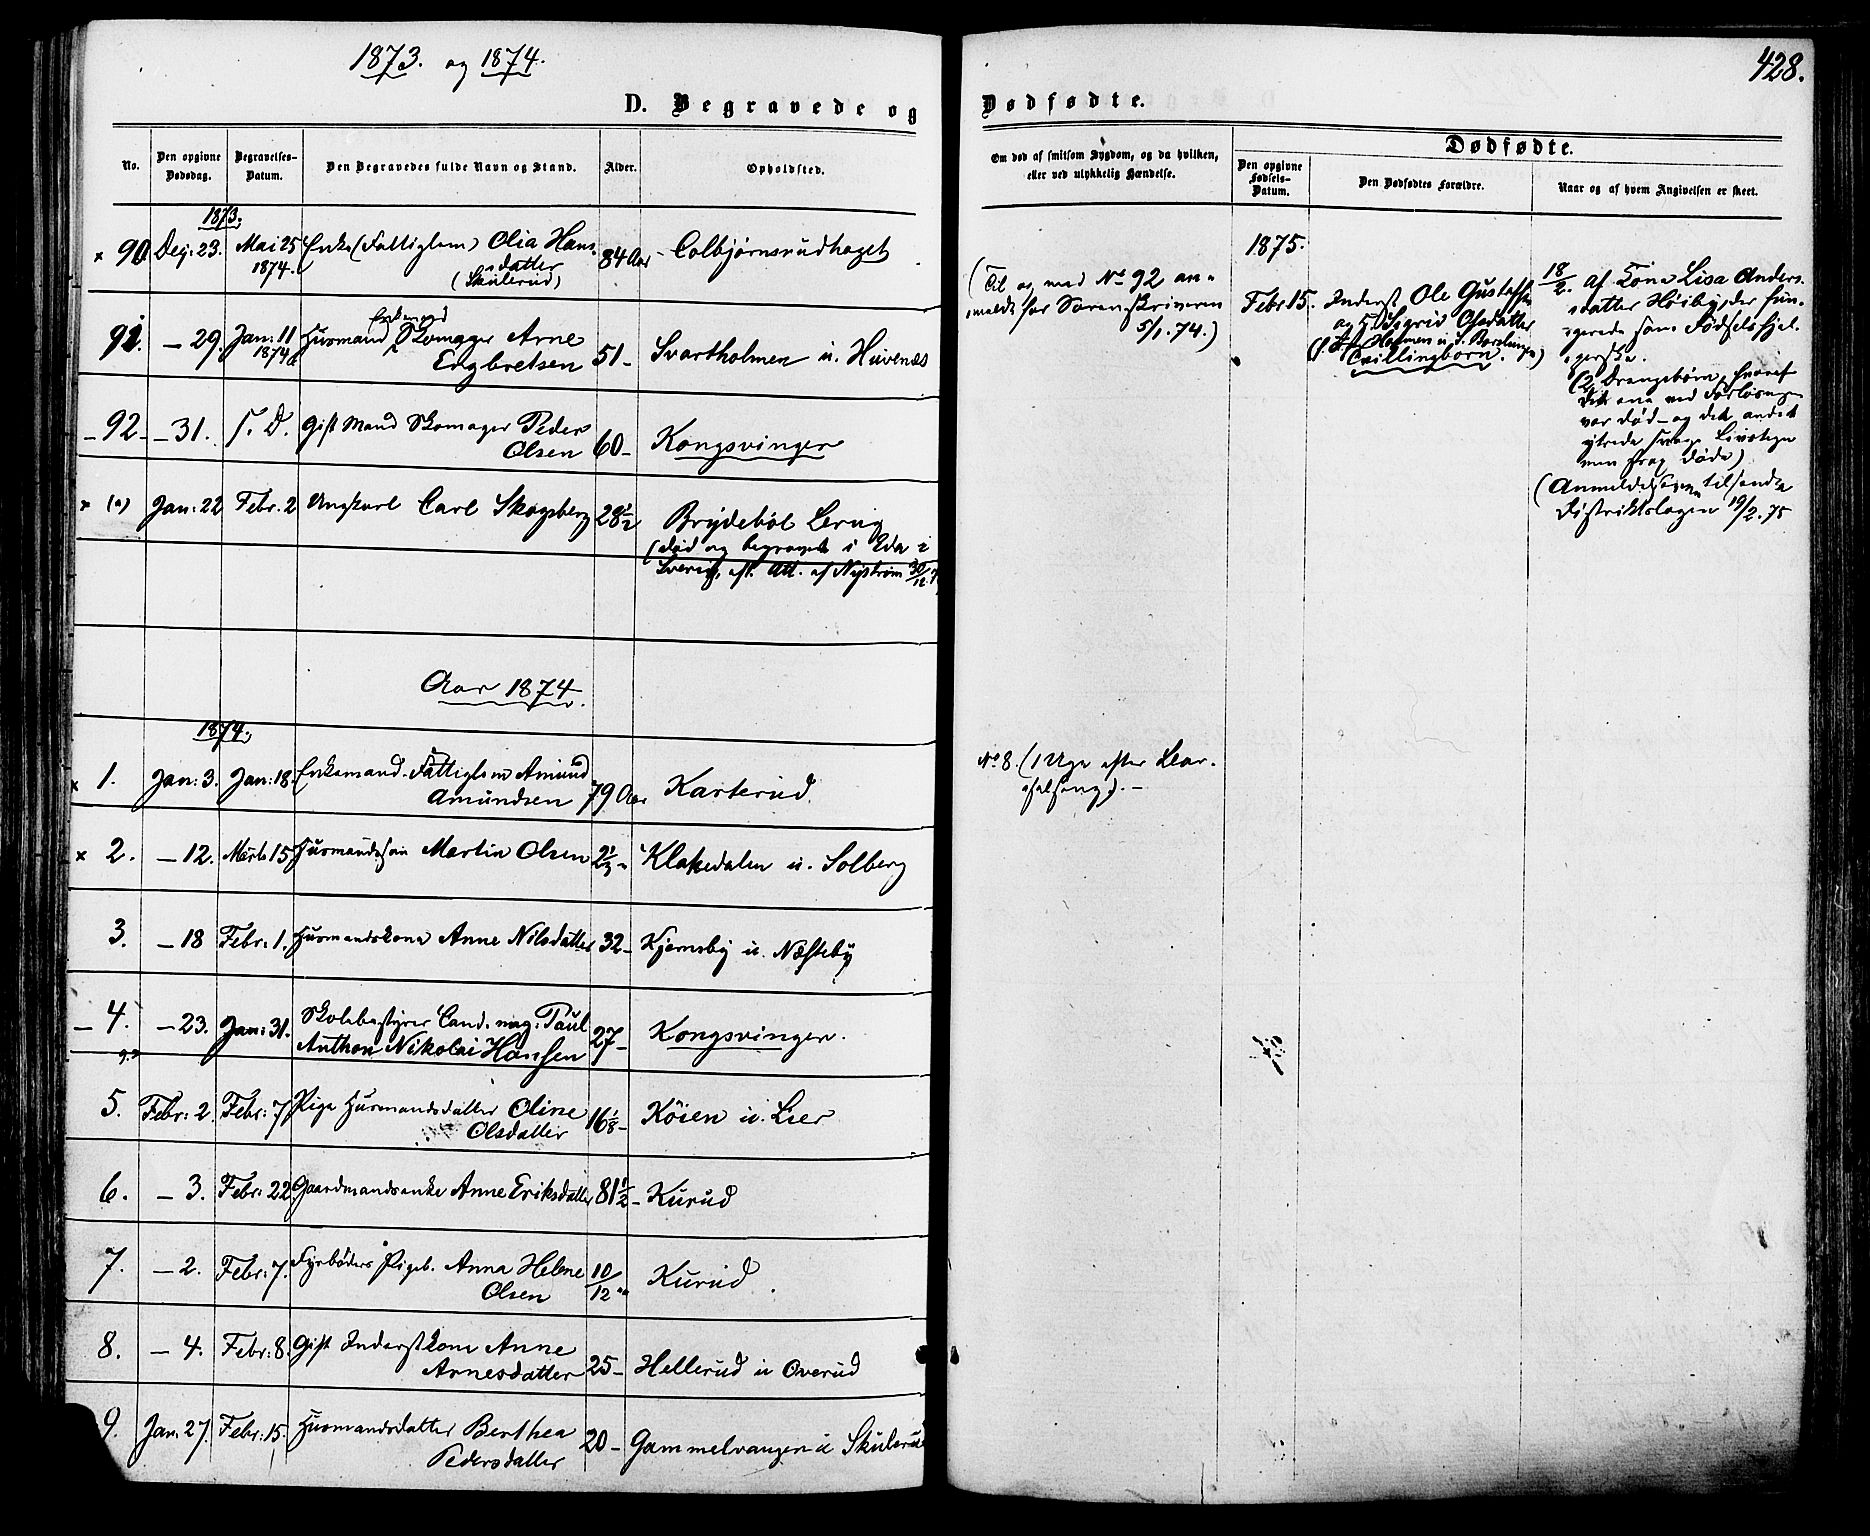 1873. og 1874.
428.
D. Begravede og
Dødfødte.
No.
Den opgivne Dødsdag.
Begravelses-Datum.
Den Begravedes fulde Navn og Stand.
Alder.
Opholdsted.
Om død af smitsom Sygdom, og da hvilken,
eller ved ulykkelig Hændelse.
Dødfødte.
Den opgivne Fødsels-Datum.
Den Dødfødtes Forældre.
Naar og af hvem Angivelsen er skeet.
1873.
× 90 Dez: 23. Mai 25 Enke (Fattiglem) Olia Hans- 84 Aar Colbjørnsrudhaget
1874. datter
(Skulerud)
91. — 29. Jan: 11 Husmand Enkemand Skomager Arne 51 - Svartholmen u. Huvenæs
1874 Engbretsen
92 — 31. S. D. Gift Mand Skomager Peder 60 - Kongsvinger
Olsen
× (a) Jan: 22 Febr. 2 Ungkarl Carl Skogsberg 28 1/2 Brydeböl Lerug
(død og begravet i Eda i
Sverig, eft. Att. af Nystrøm 30/12
(Til og med No 92 an-
meldt for Sorenskriveren
5/1. 74.)
1875.
Febr 15. Inderst Ole Gustafsen
og H. Sigrid Olsdatter
Tvillingbørn.
18/2. af Lisa Anders-
datter Höiby, der fun-
gerede som Fødselshjel-
perske.
(2 Drengebørn, hvoraf
det ene ved Forløsningen
var død - og det andet
ytrede svage Livstegn
men strax døde)
(Anmeldelsen tilsendt
Distriktslægen 19/2. 75
Aar 1874.
1874.
× 1. Jan: 3. Jan: 18. Enkemand Fattiglem Amund 79 Aar Karterud.
Amundsen
× 2. — 12. Marts 15 Husmandssøn Martin Olsen 2 1/3 - Klakedalen u. Solberg
3. — 18 Febr: 1. Husmandskone Anne Nilsdatter 32 - Kjernsby u. Næsteby
4. — 23. Jan: 31. Skolebestyrer Cand. mag. Paul 27 - Kongsvinger.
Anthon Nikolai Hansen
5. Febr: 2 Febr: 7 Pige Husmandsdatter Oline 16 1/8 - Köien u. Lier
Olsdatter
6. — 3. Febr: 22 Gaardmandsenke Anne Eriksdatter 81 1/2 - Kurud
7. — 2. Febr: 7. Fyrbøders Pigeb. Anna Helene 10/12 Kurud.
Olsen
8. — 4. Febr: 8. Gift Inderstkone Anne 25 - Hellerud u Overud
Arnesdatter
9. Jan: 27. Febr: 15. Husmandsdatter Berthea 20 - Gammelvangen u Skulerud
Pedersdatter
No 8. (1 Uge efter Bar-
selseng). -